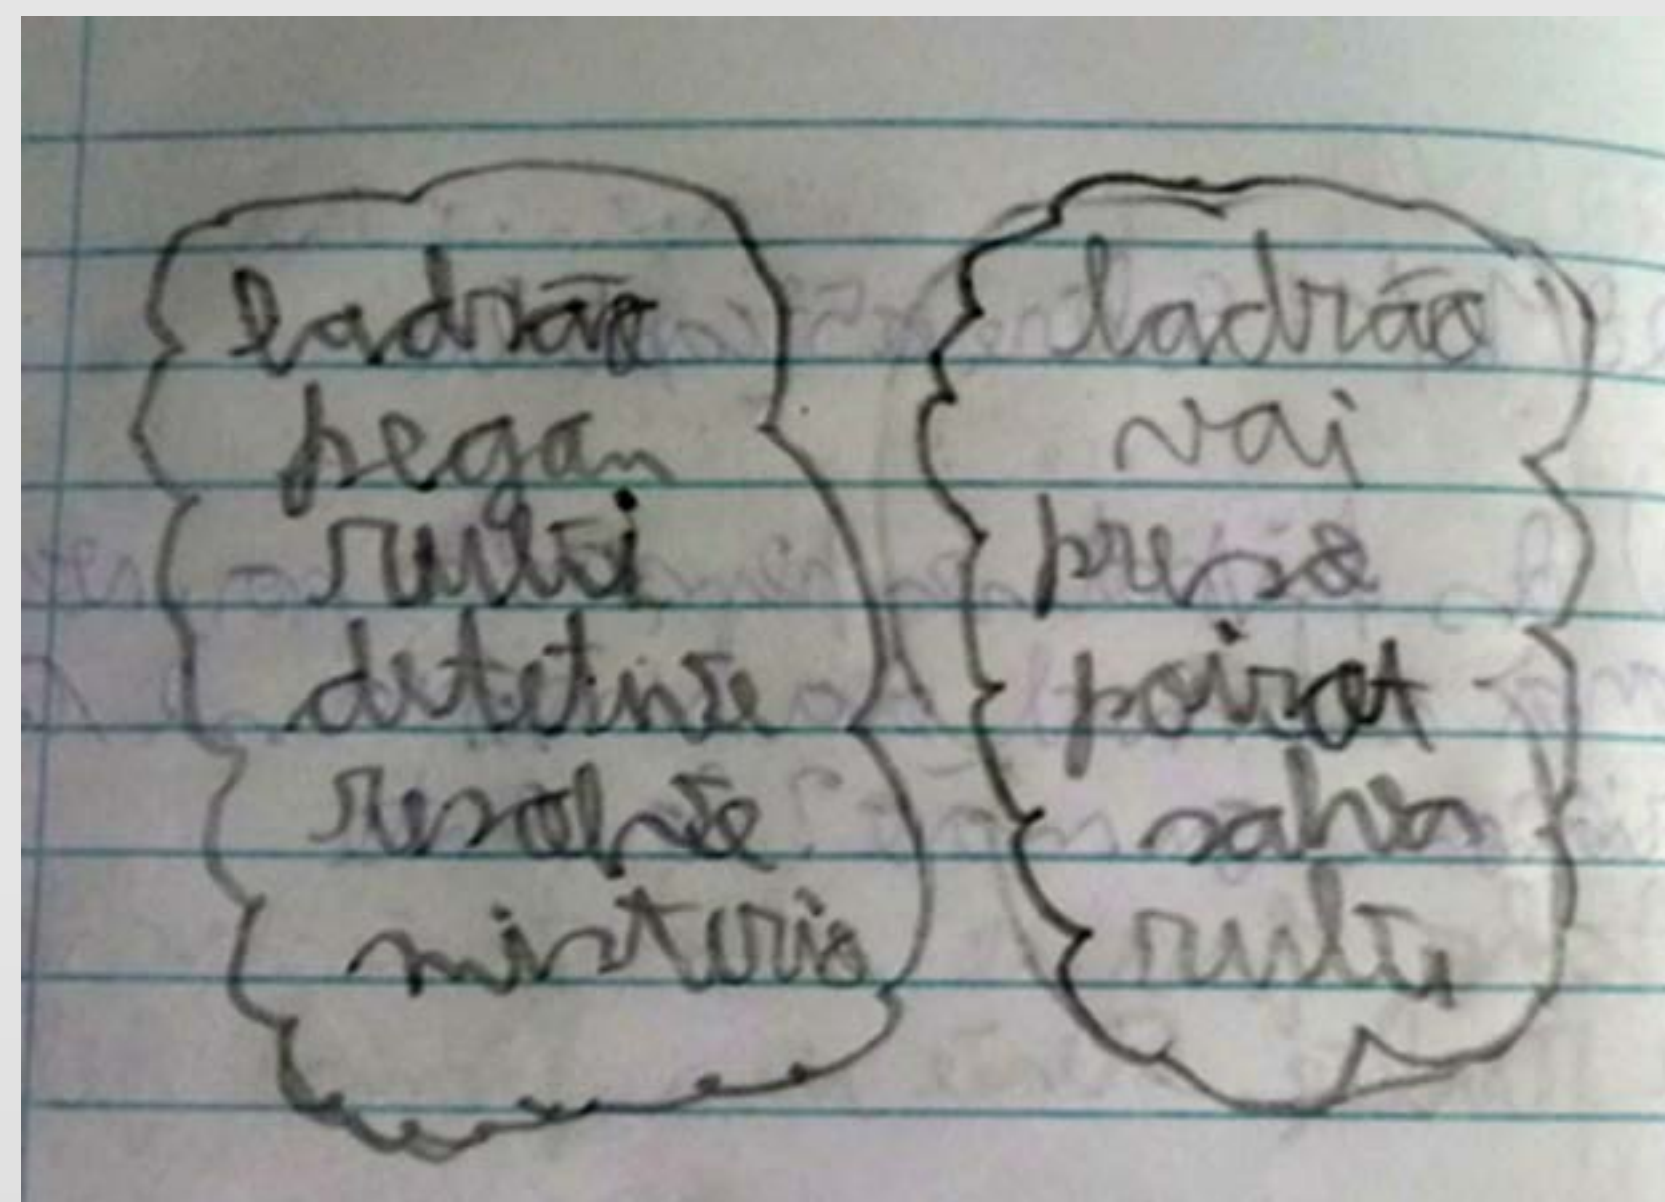 ladrão
pegar
rubi
detetive
resolve
misterio
ladrão
vai
preso
poirot
salva
rubi